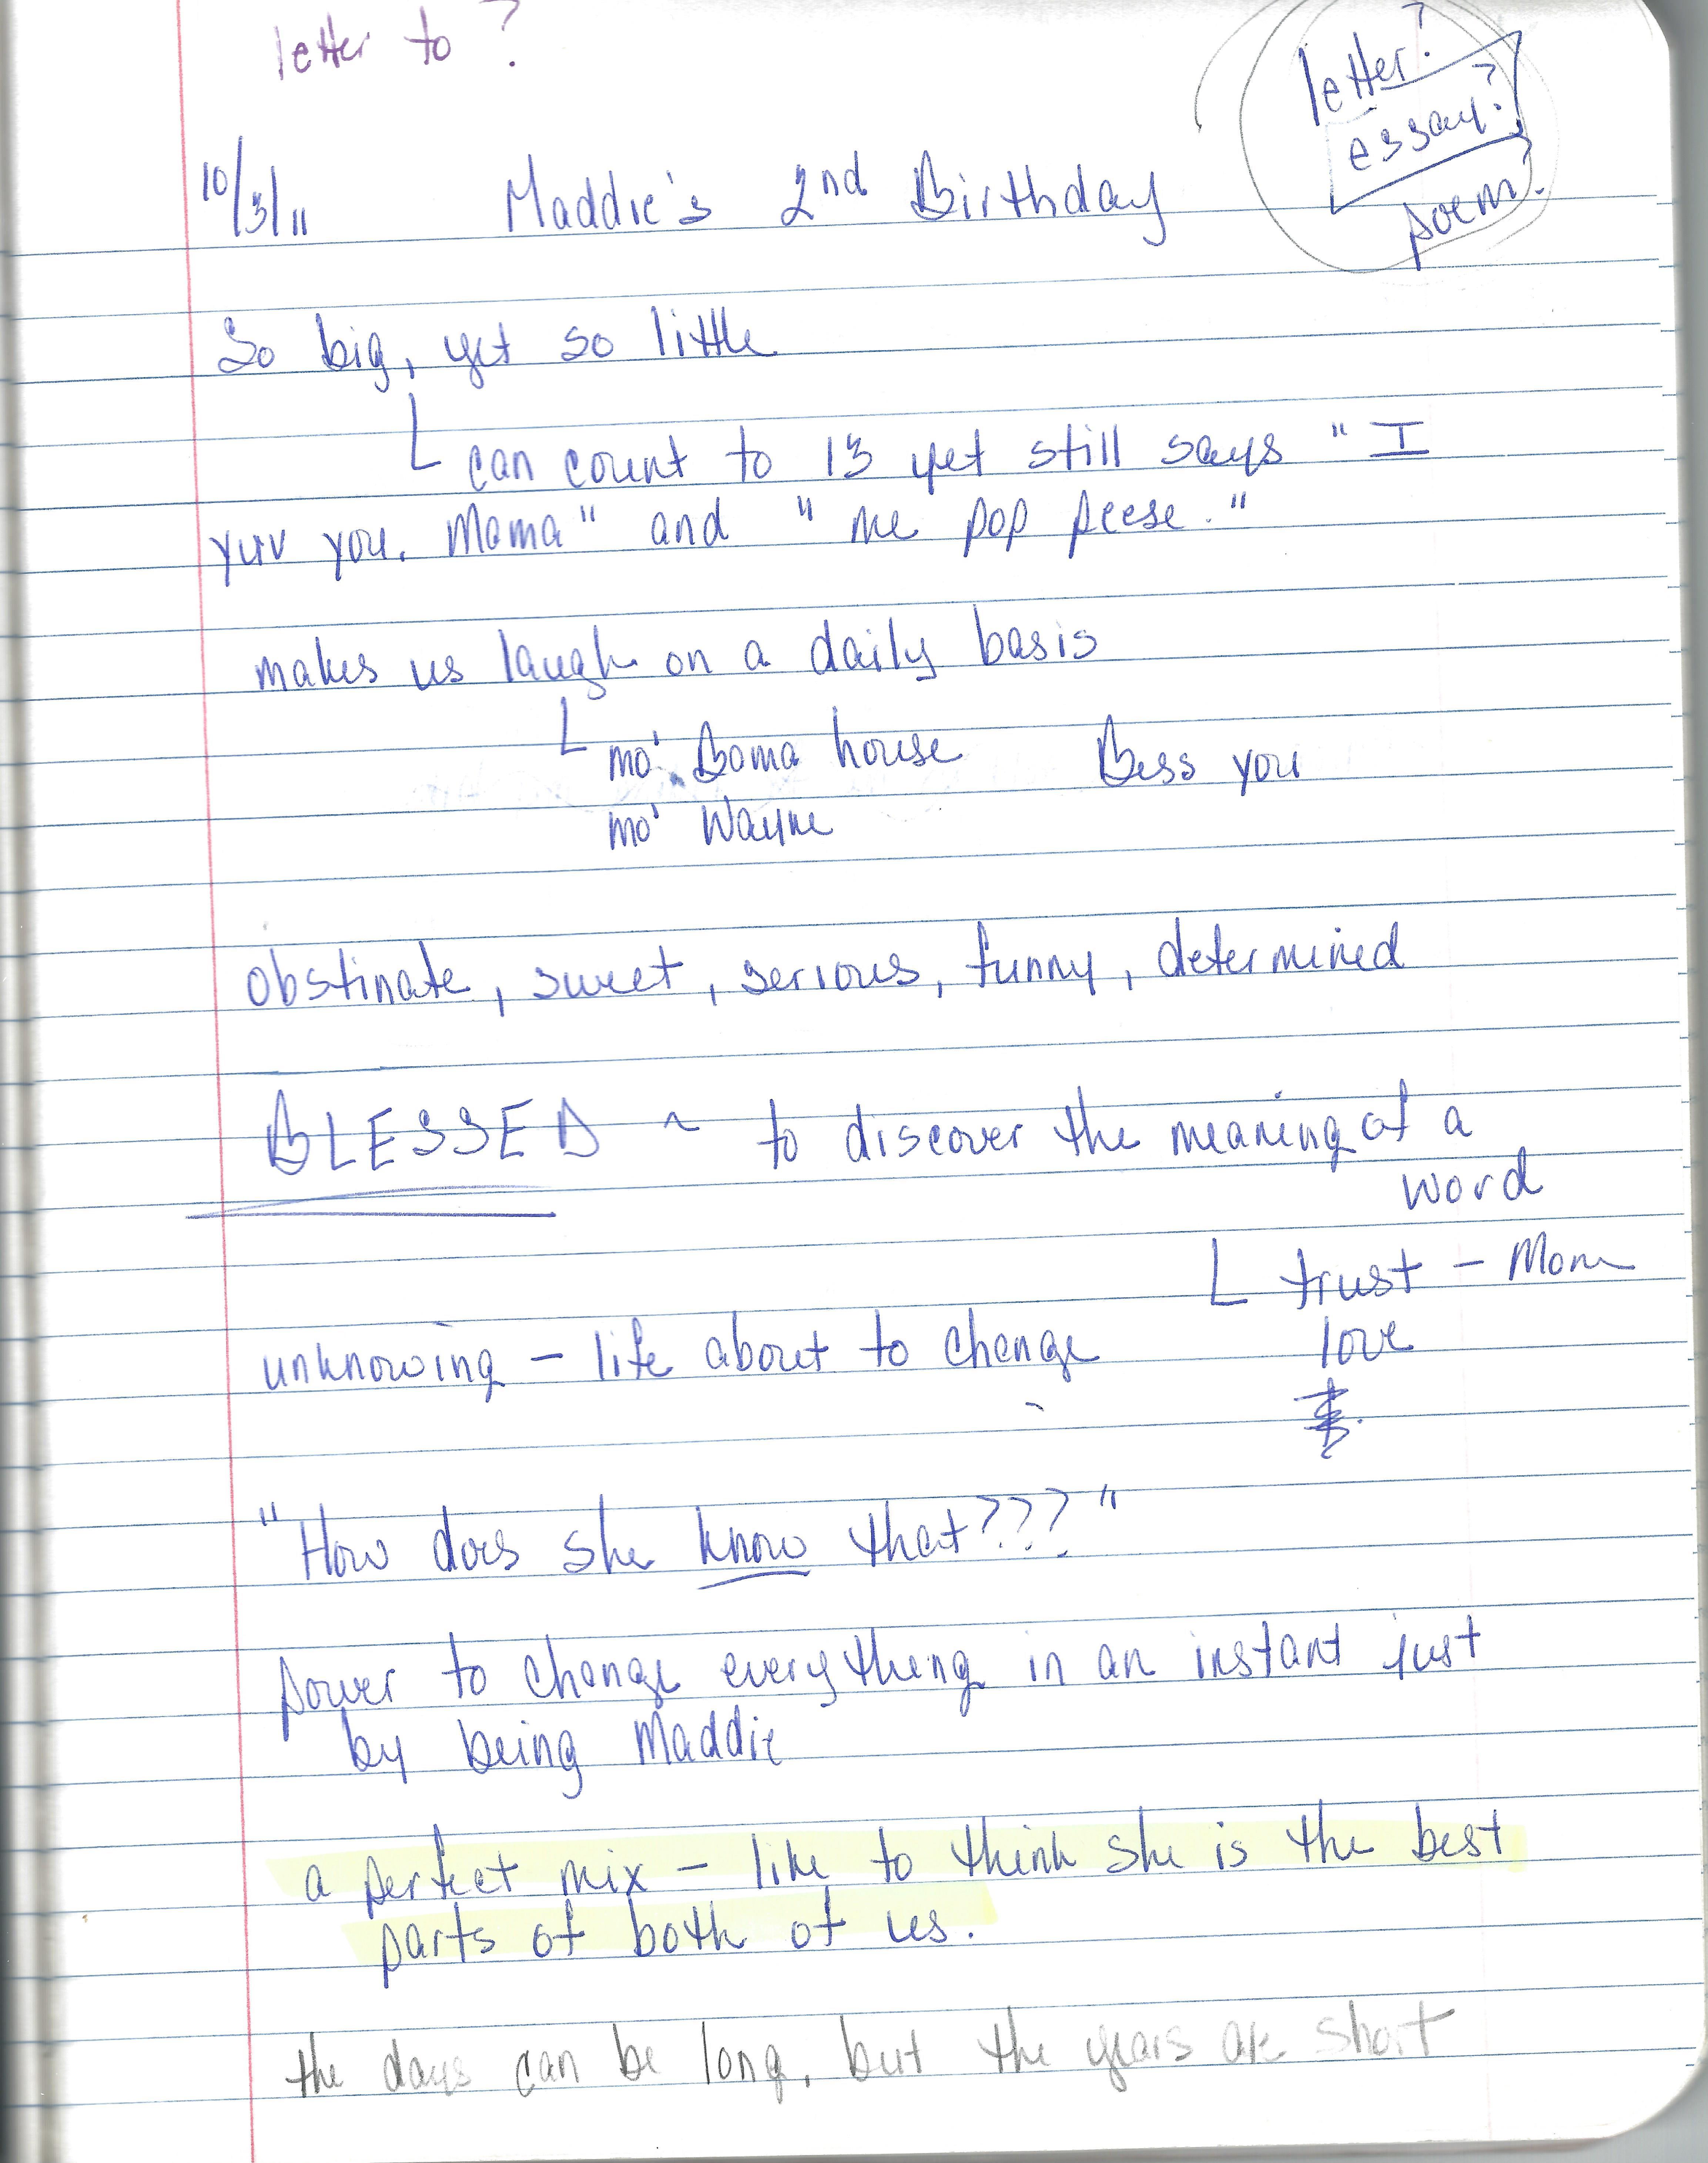 letter to ?
letter?
essay?
poem?
10/3/11 Maddie's 2nd Birthday
So big, yet so little
can count to 13 yet still says "I
yuv you. Mama" and "me pop peese."
makes us laugh on a daily basis
mo' Boma house Bess you
mo' Wayne
obstinate, sweet, serious, funny, determined
BLESSED ~ to discover the meaning of a
word
trust - Mom
unknowing - life about to change
love
"How does she know that???"
power to change everything in an instant just
by being Maddie
a perfect mix - like to think she is the best
parts of both of us.
the days can be long, but the years are short